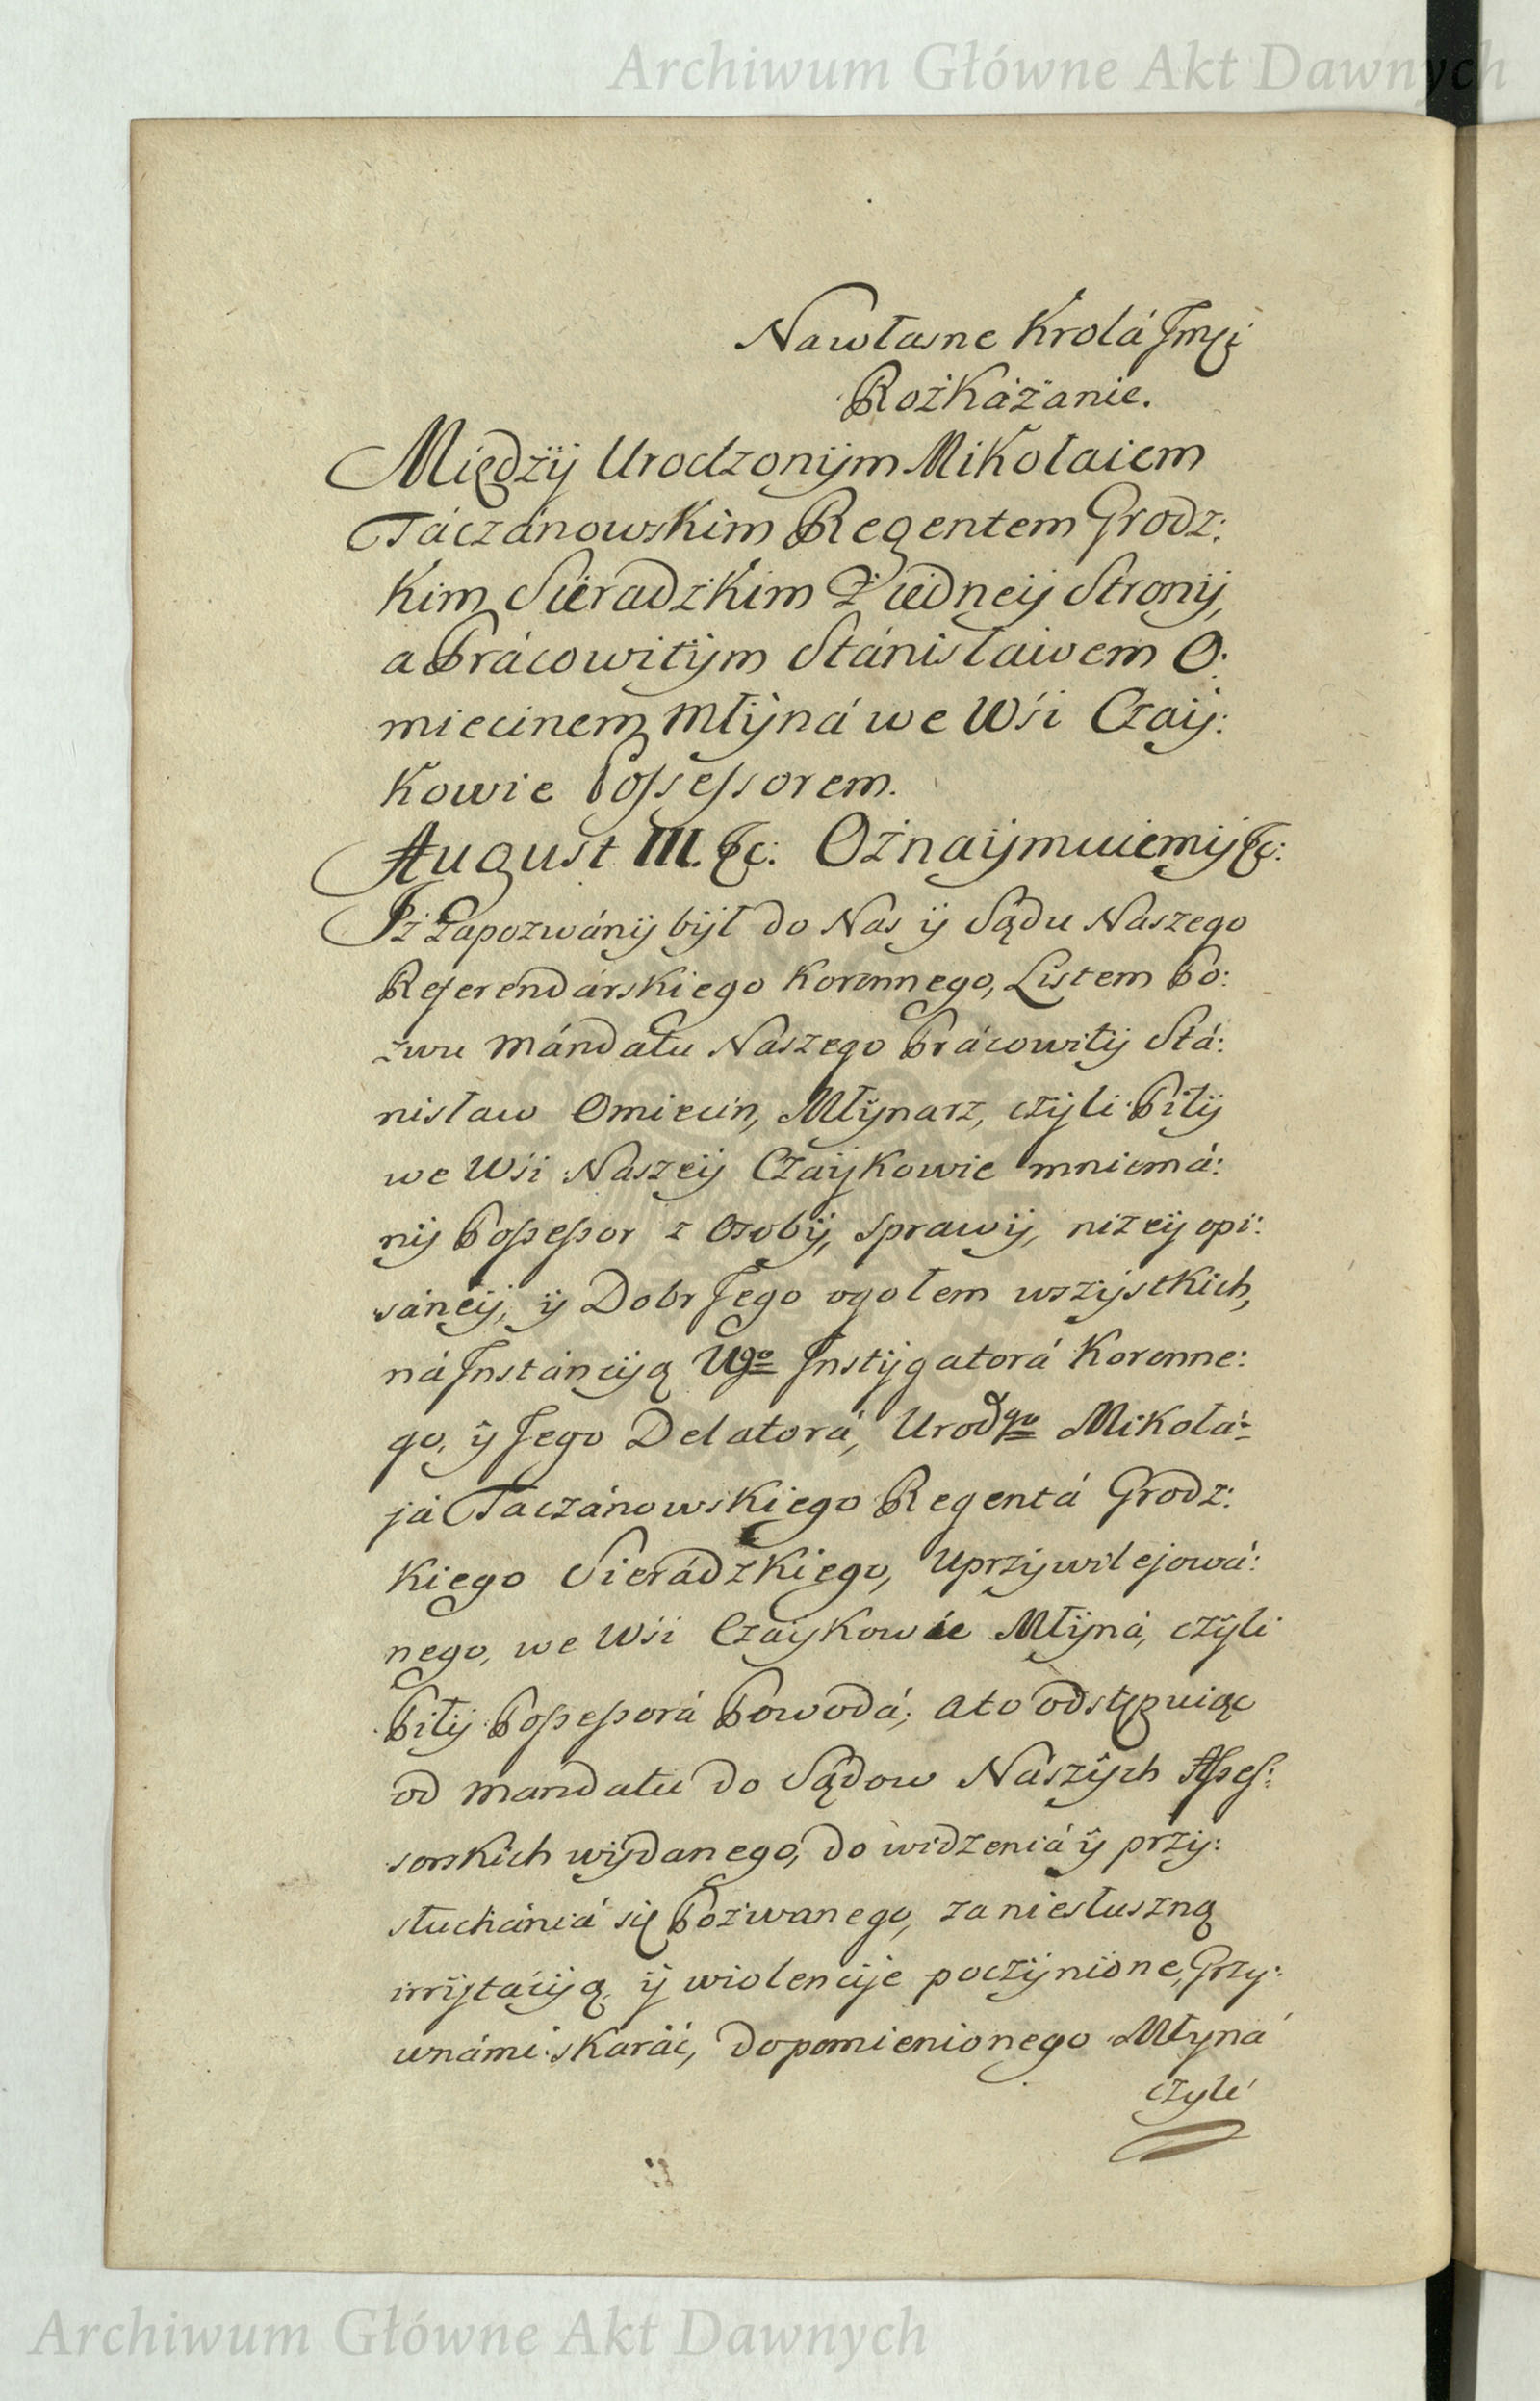 Archiwum Główne Akt Dawnych
Nawłasne Krolá Jmci
Rożkażanie.
Między Urodzonym Mikołaiem
Táczánowskim Regentem Grodz:
kim Sieradzkim Z iedney Strony,
a Prácowitym Stánisławem O:
miecinem Młyná we Wśi Czay:
kowie Possessorem.
August III. &c: Oznaymuiemy &c:
Jż Zapozwány był do Nas y Sądu Naszego
Referendárskiego Koronnego, Listem Po:
zwu Mándatu Naszego Prácowity Stá:
nisław Omiecin, Młynarz, czyli Piły
we Wśi Naszey Czaykowie mniemá:
ny Possessor z Osoby, Sprawy, niżey opi:
sáney, y Dobr Jego ogołem wszystkich,
ná Jnstáncyą Ugo Jnstygatorá Koronne:
go, y Jego Delatorá, Urodgo Mikołá:
já Táczánowskiego Regentá Grodz:
kiego Sierádzkiego, Uprzywilejowá:
nego, we Wśi Czaykowie Młyná, czyli
Piły Possessorá Powodá; Ato odstępuiąc
od Mandatu do Sądow Nászych Asses:
sorskich wydanego, do widzeniá y przy:
słuchániá się Pozwanego, za niesłuszną
irrytácyą, y wiolencye poczynione, Grzy:
wnámi skaráć, do pomienionego Młyná
czyli
Archiwum Główne Akt Dawnych